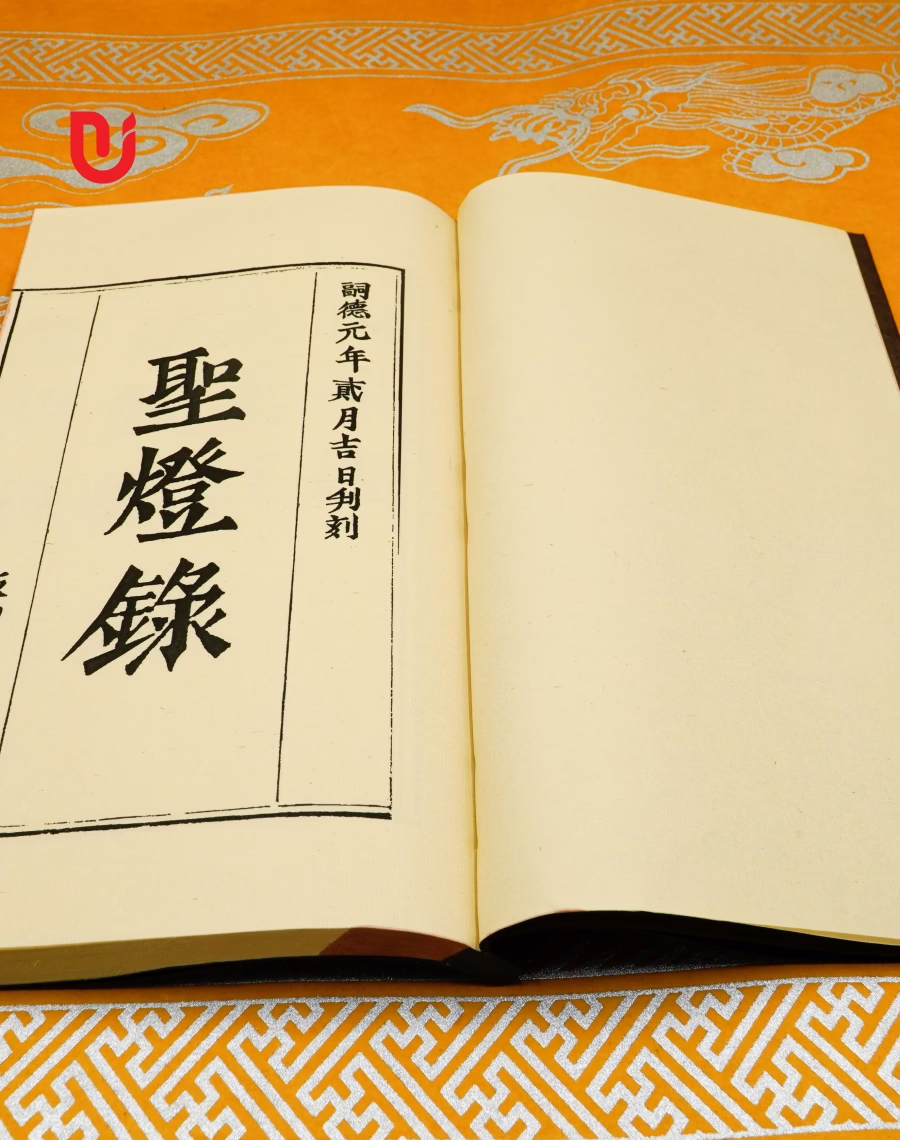 嗣德元年貳月吉日刋刻
聖燈錄